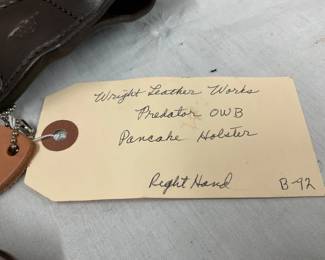 Wright Leather Works
Predator OWB
Pancake Holster
Right Hand B-92